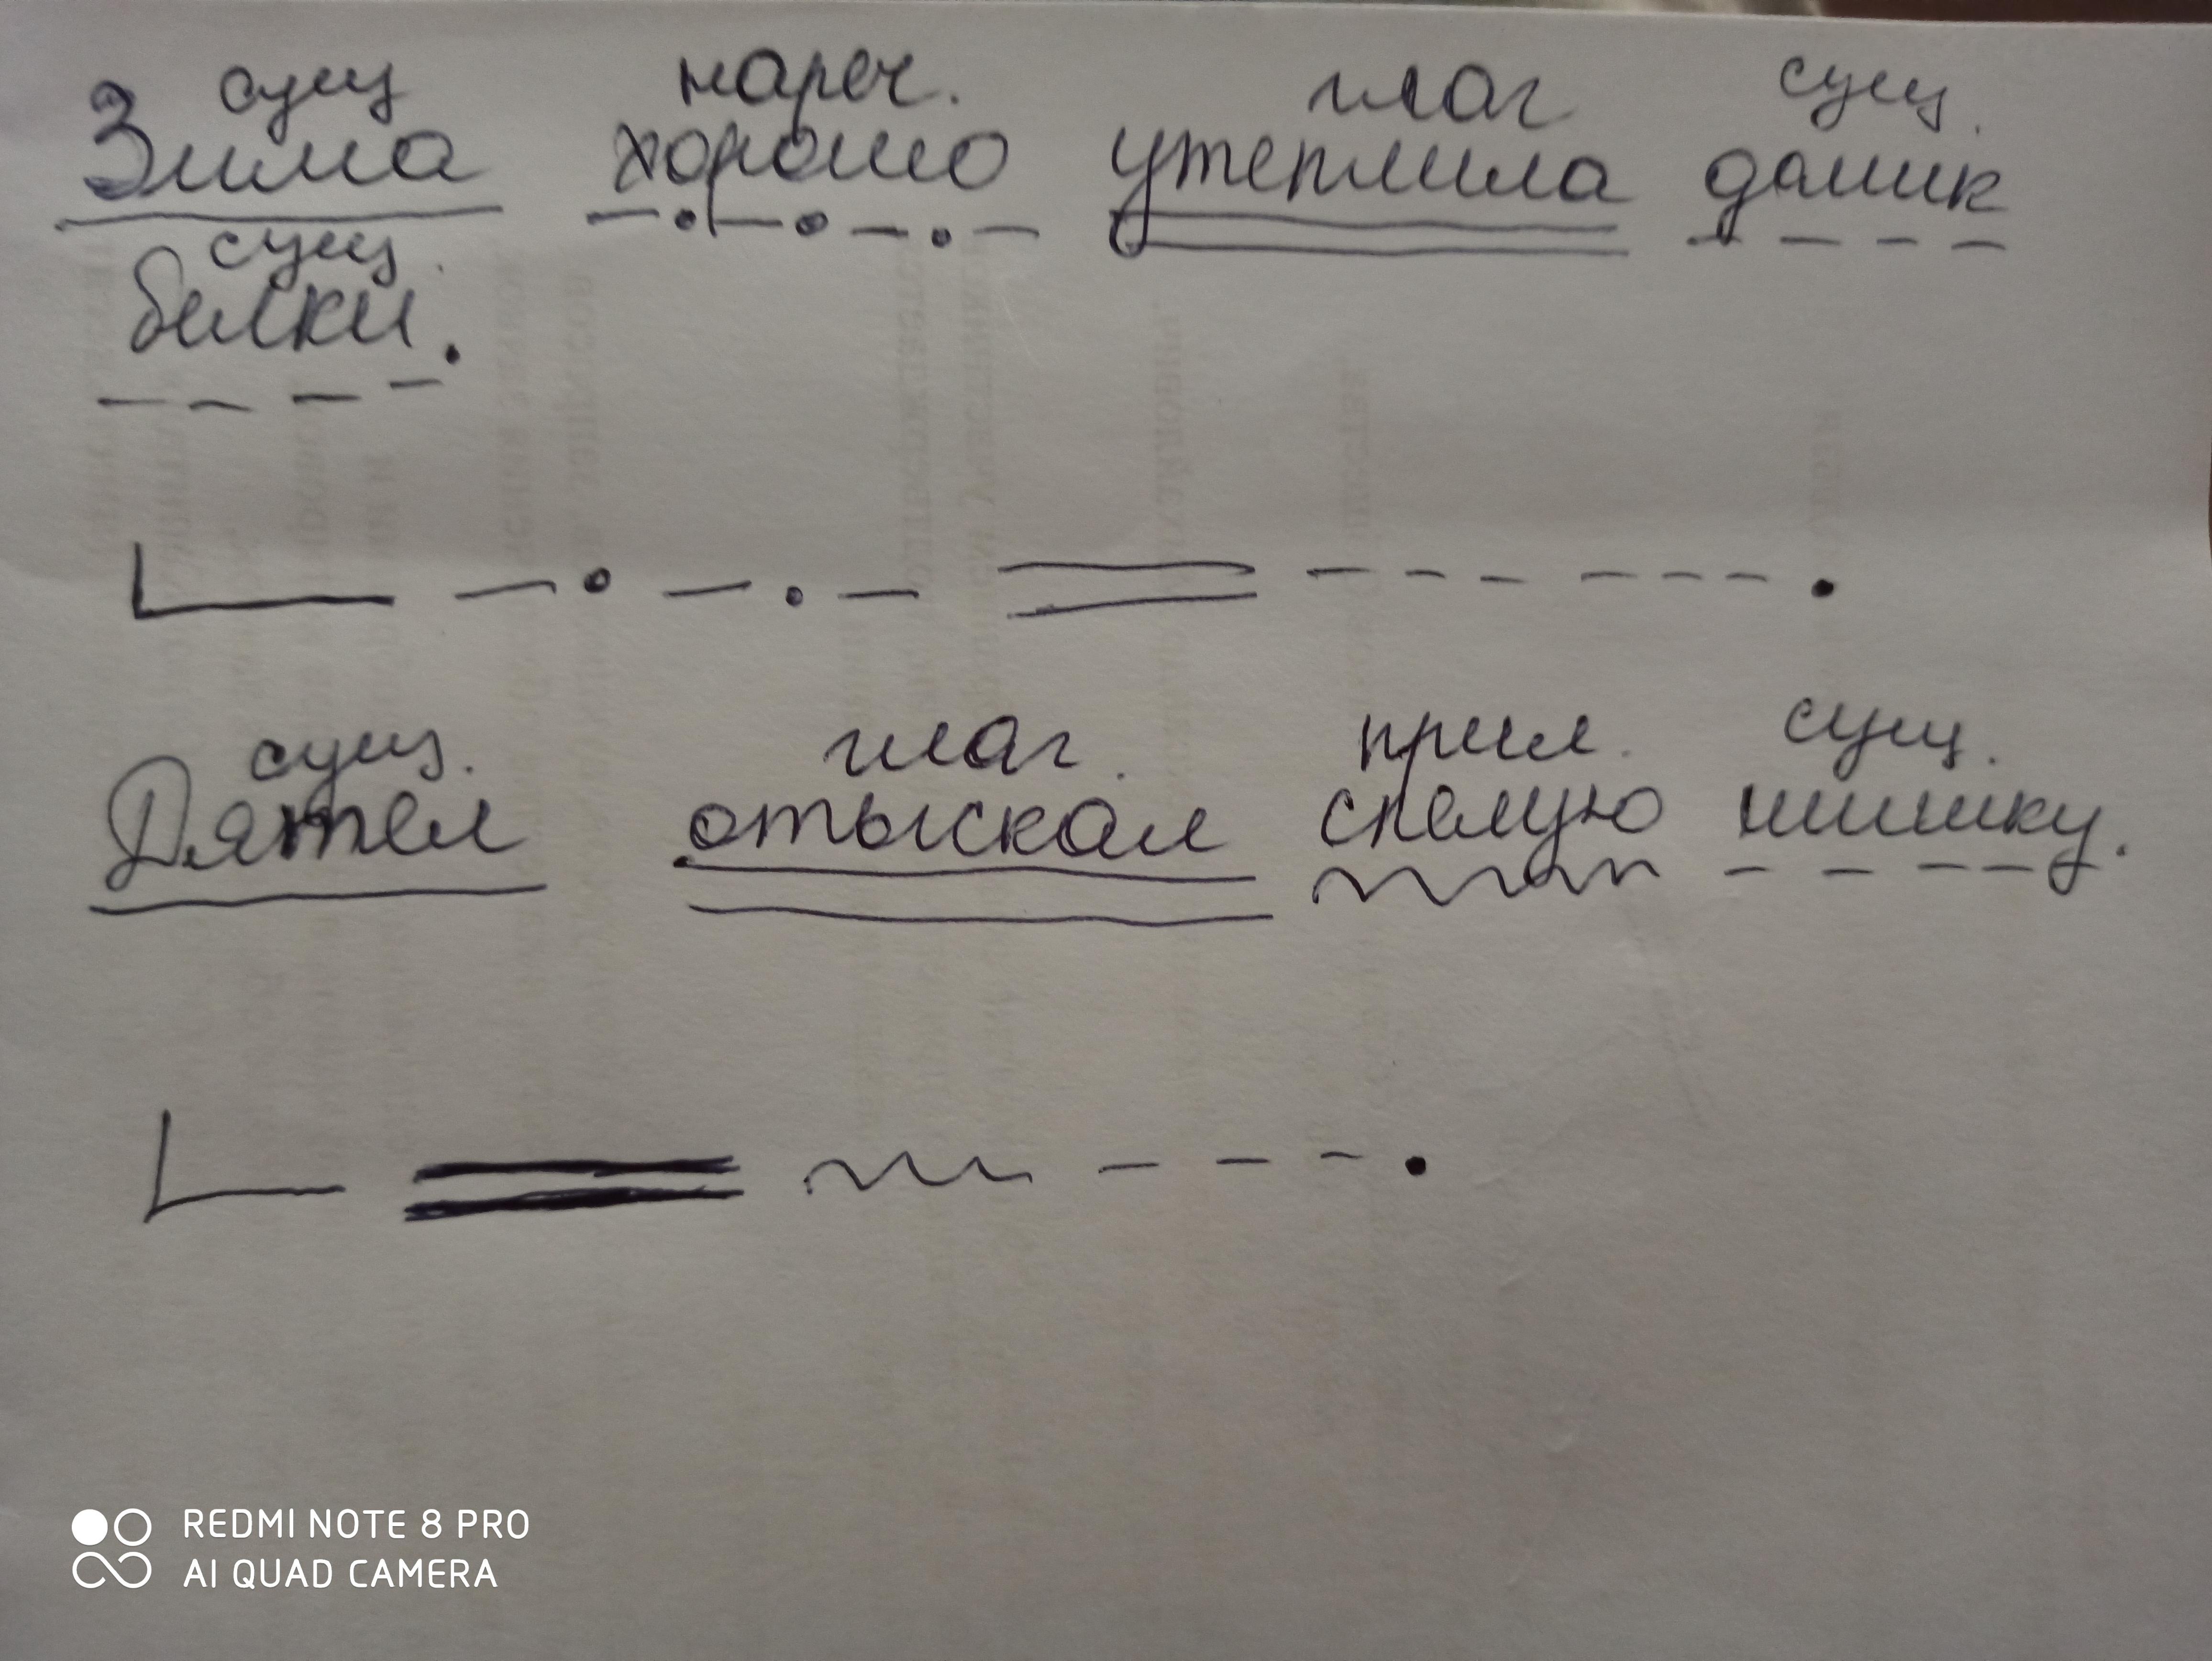 сущ нареч. глаг сущ.
Зима хорошо утеплила домик
сущ.
белки.
сущ. глаг. прил. сущ.
Дятел отыскал спелую шишку.
REDMI NOTE 8 PRO
AI QUAD CAMERA